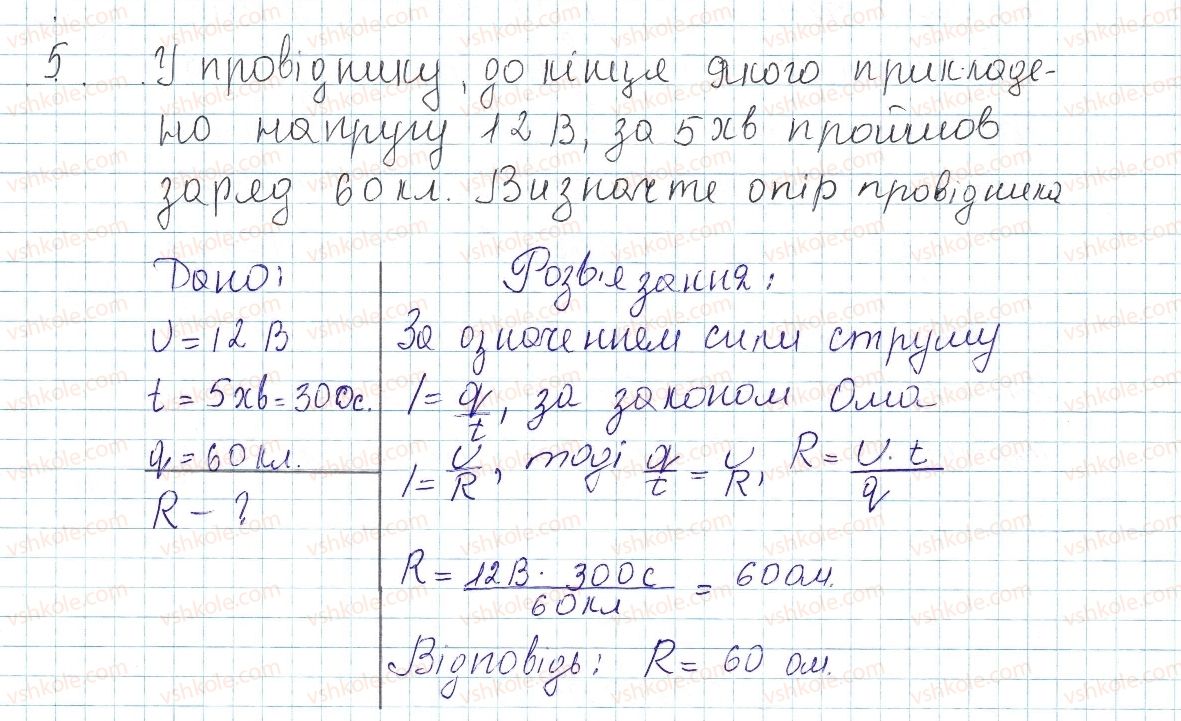 5. У провіднику, до кінця якого прикладе-
но напругу 12 В, за 5 хв пройшов
заряд 60 кл. Визначте опір провідника
Дано:
U = 12 В
t = 5хв = 300с.
q = 60 кл.
R - ?
Розв'язання:
За означенням сили струму
I = q/t, за законом Ома
I = U/R, тоді q/t = U/R, R = U · t/q
R = 12В · 300с/60кл = 60 ом.
Відповідь: R = 60 ом.
vshkole.com